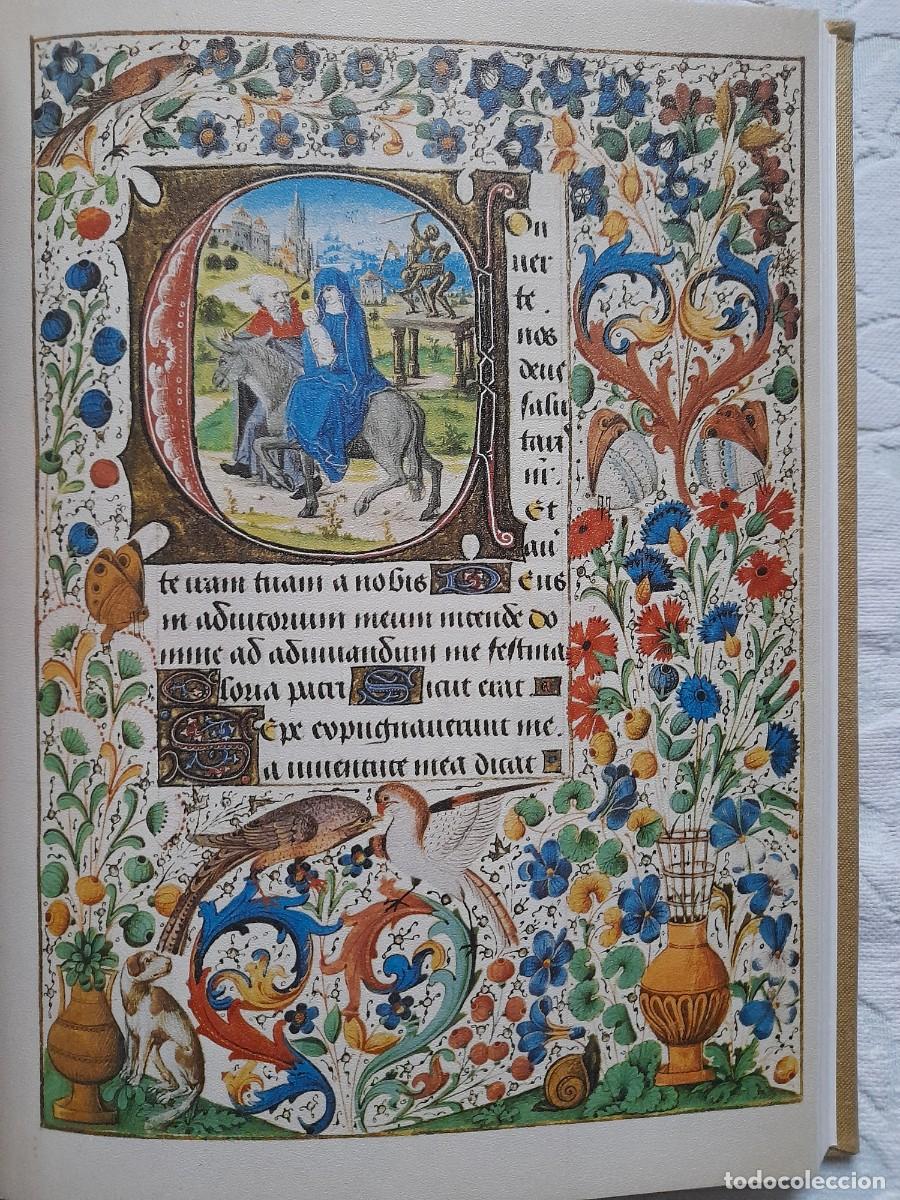 Con
uer
te
nos
deus
salu
tari
nr̄.
Et
aū
te iram tuam a nobis Deus
in adiutorium meum intende do
mine ad adiuuandum me festina
Gloria patri Sicut erat
Sepe expugnauerunt me
a iuuentute mea dicat
todocoleccion